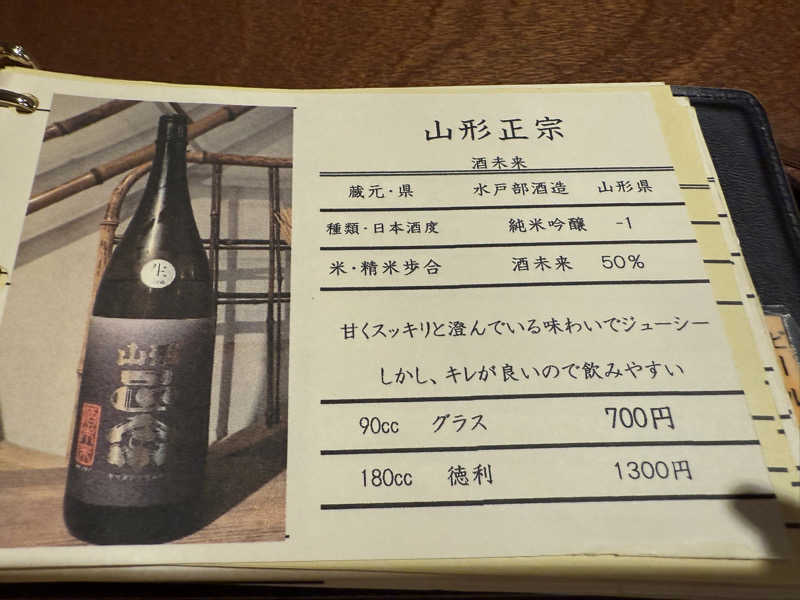 山形正宗
酒未来
蔵元・県 水戸部酒造 山形県
種類・日本酒度 純米吟醸 -1
米・精米歩合 酒未来 50%
甘くスッキリと澄んでいる味わいでジューシー
しかし、キレが良いので飲みやすい
90cc グラス 700円
180cc 徳利 1300円
生
山形
正宗
酒未来
ビール